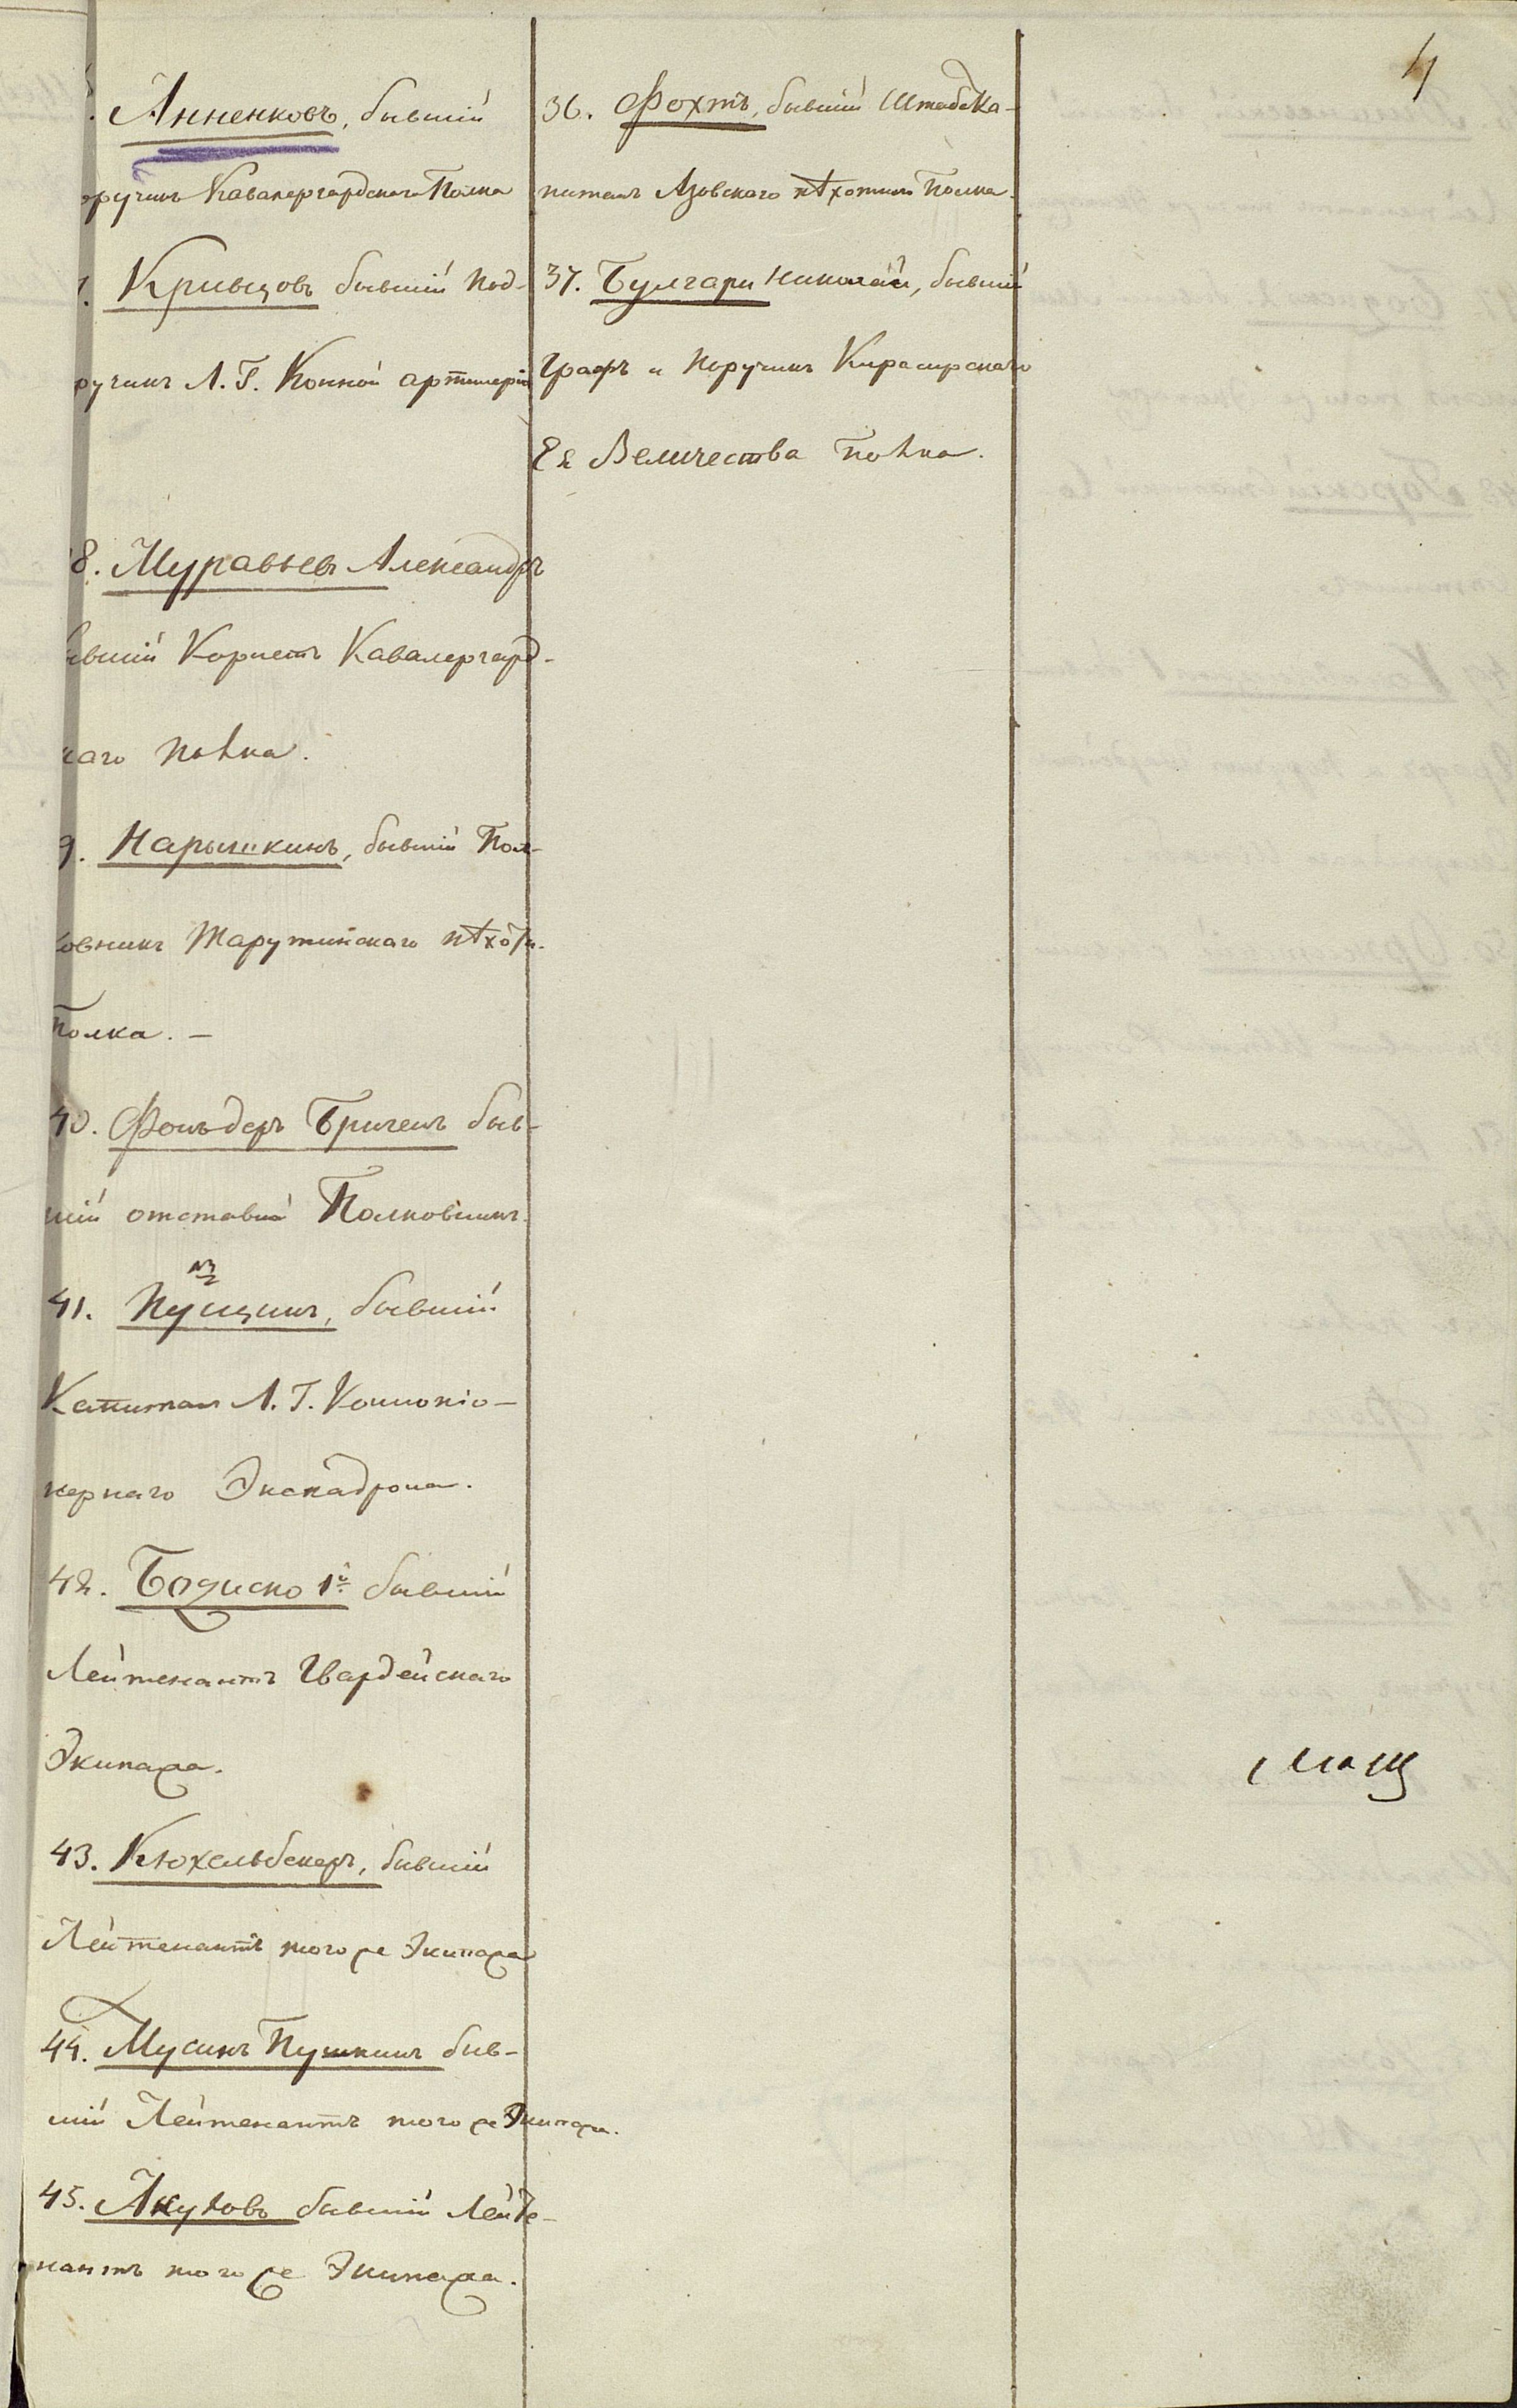 4
Анненковъ, бывшій
оручикъ Кавалергардскаго Полка
Кривцовъ бывшій Под-
ручикъ Л. Г. Конной артилеріи
8. Муравьевъ Александръ
ывшій Корнетъ Кавалергард-
каго полка.
9. Нарышкинъ, бывшій Пол-
ковникъ Тарутинскаго пѣхотн.
Полка. –
40. Фонъ-деръ Бригенъ быв-
шій отставной Полковникъ.
41. Пущинъ, бывшій
Капитанъ Л. Г. Коннопіо-
нернаго Эскадрона.
42. Бодиско 1й бывшій
Лейтенантъ Гвардейскаго
Экипажа.
43. Кюхельбекеръ, бывшій
Лейтенантъ того же Экипажа
44. Мусинъ Пушкинъ быв-
шій Лейтенантъ того же Экипажа.
45. Акуловъ бывшій Лейте-
нантъ того же Экипажа.
36. Фохтъ, бывшій Штабска-
питанъ Азовскаго пѣхотнаго Полка.
37. Булгари Николай, бывшій
Графъ и Поручикъ Кирасирскаго
Ея Величества полка.